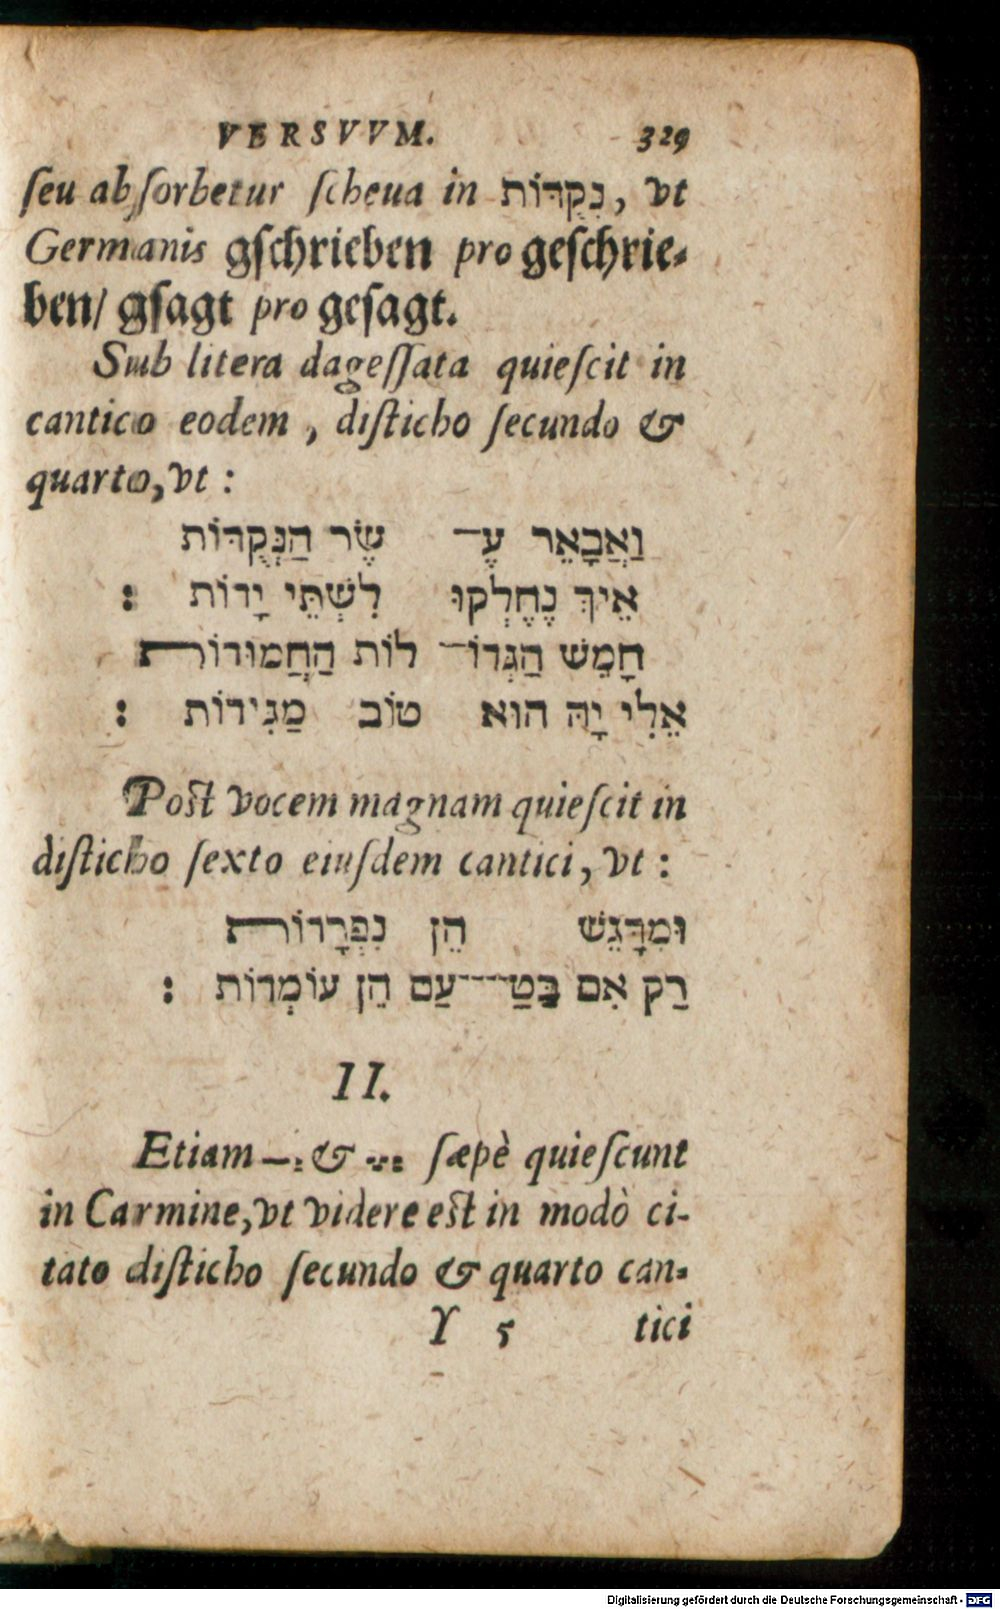 VERSVVM. 329
ſeu abſorbetur ſcheua in נִקֻדּוֹת, vt
Germanis gſchrieben pro geſchrie⸗
ben/ gſagt pro geſagt.
Sub litera dageſſata quieſcit in
cantico eodem , diſticho ſecundo &
quarto, vt :
וַאֲבָאֵר עֶ— שֶׂר הַנְּקֻדּוֹת
אֵיךְ נֶחֶלְקוּ לִשְׁתֵּי יָדוֹת :
חָמֵשׁ הַגְּדוֹ— לוֹת הַחֲמוּדוֹת
אֵלִי יָהּ הוּא טוֹב מַגִּידוֹת :
Poſt vocem magnam quieſcit in
diſticho ſexto eiuſdem cantici, vt :
וּמִדָּגֵשׁ הֵן נִפְרָדוֹת
רַק אִם בַּטַ—עַם הֵן עוֹמְדוֹת :
II.
Etiam —: & ·.·: ſæpè quieſcunt
in Carmine, vt videre eſt in modò ci-
tato diſticho ſecundo & quarto can⸗
Y 5 tici
Digitalisierung gefördert durch die Deutsche Forschungsgemeinschaft - DFG